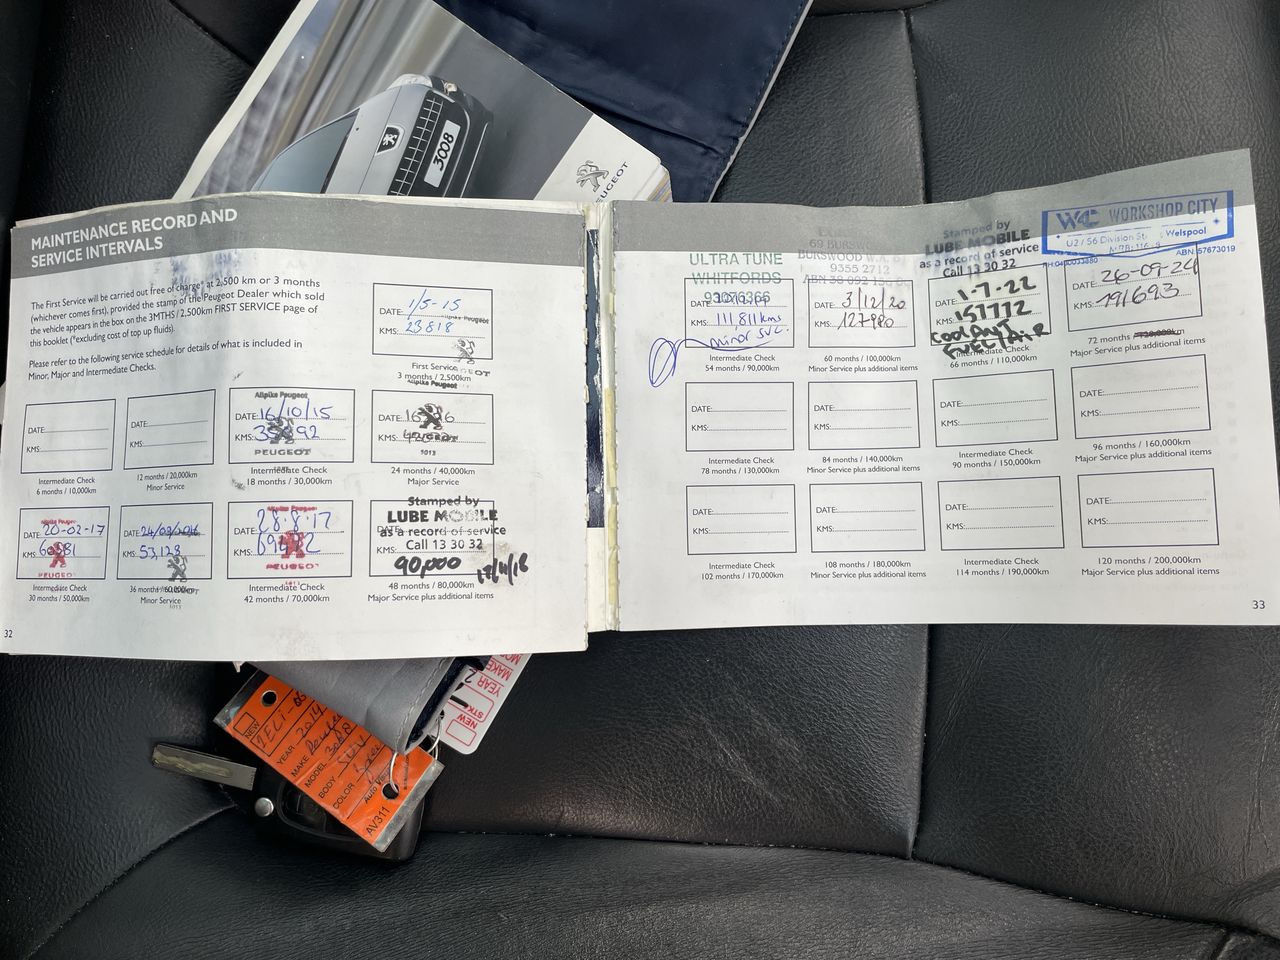 3008
PEUGEOT
MAINTENANCE RECORD AND
SERVICE INTERVALS
The First Service will be carried out free of charge* at 2,500 km or 3 months
(whichever comes first), provided the stamp of the Peugeot Dealer which sold
the vehicle appears in the box on the 3MTHS / 2,500km FIRST SERVICE page of
this booklet (*excluding cost of top up fluids).
Please refer to the following service schedule for details of what is included in
Minor, Major and Intermediate Checks.
DATE: 1/5-15
KMS: 23818
First Service
3 months / 2,500km
DATE:
KMS:
Intermediate Check
6 months / 10,000km
DATE:
KMS:
12 months / 20,000km
Minor Service
Allpike Peugeot
DATE: 16/10/15
KMS:
PEUGEOT
Intermediate Check
18 months / 30,000km
Allpike Peugeot
DATE:
KMS:
PEUGEOT
24 months / 40,000km
Major Service
DATE: 20-02-17
KMS:
PEUGEOT
Intermediate Check
30 months / 50,000km
DATE:
KMS: 53,128
36 months / 60,000km
Minor Service
DATE: 28.8.17
KMS:
PEUGEOT
Intermediate Check
42 months / 70,000km
Stamped by
LUBE MOBILE
as a record of service
Call 13 30 32
DATE:
KMS:
90,000
17/11/18
48 months / 80,000km
Major Service plus additional items
32
ULTRA TUNE
WHITFORDS
93076366
DATE:
KMS: 111,811 kms
minor svc.
Intermediate Check
54 months / 90,000km
BURSWOOD W.A.
9355 2712
DATE: 3/12/20
KMS: 127980
60 months / 100,000km
Minor Service plus additional items
Stamped by
LUBE MOBILE
as a record of service
Call 13 30 32
1-7-22
157772
COOLANT
FUEL/AIR
Intermediate Check
66 months / 110,000km
W4C WORKSHOP CITY
U2 / 56 Division St Welspool
DATE: 26-09-24
KMS: 191693
72 months / 120,000km
Major Service plus additional items
DATE:
KMS:
Intermediate Check
78 months / 130,000km
DATE:
KMS:
84 months / 140,000km
Minor Service plus additional items
DATE:
KMS:
Intermediate Check
90 months / 150,000km
DATE:
KMS:
96 months / 160,000km
Major Service plus additional items
DATE:
KMS:
Intermediate Check
102 months / 170,000km
DATE:
KMS:
108 months / 180,000km
Minor Service plus additional items
DATE:
KMS:
Intermediate Check
114 months / 190,000km
DATE:
KMS:
120 months / 200,000km
Major Service plus additional items
33
NEW
YEAR 2014
MAKE
MODEL 3008
BODY SUV
COLOR
AV311
MAKE
YEAR 2
STK
NEW